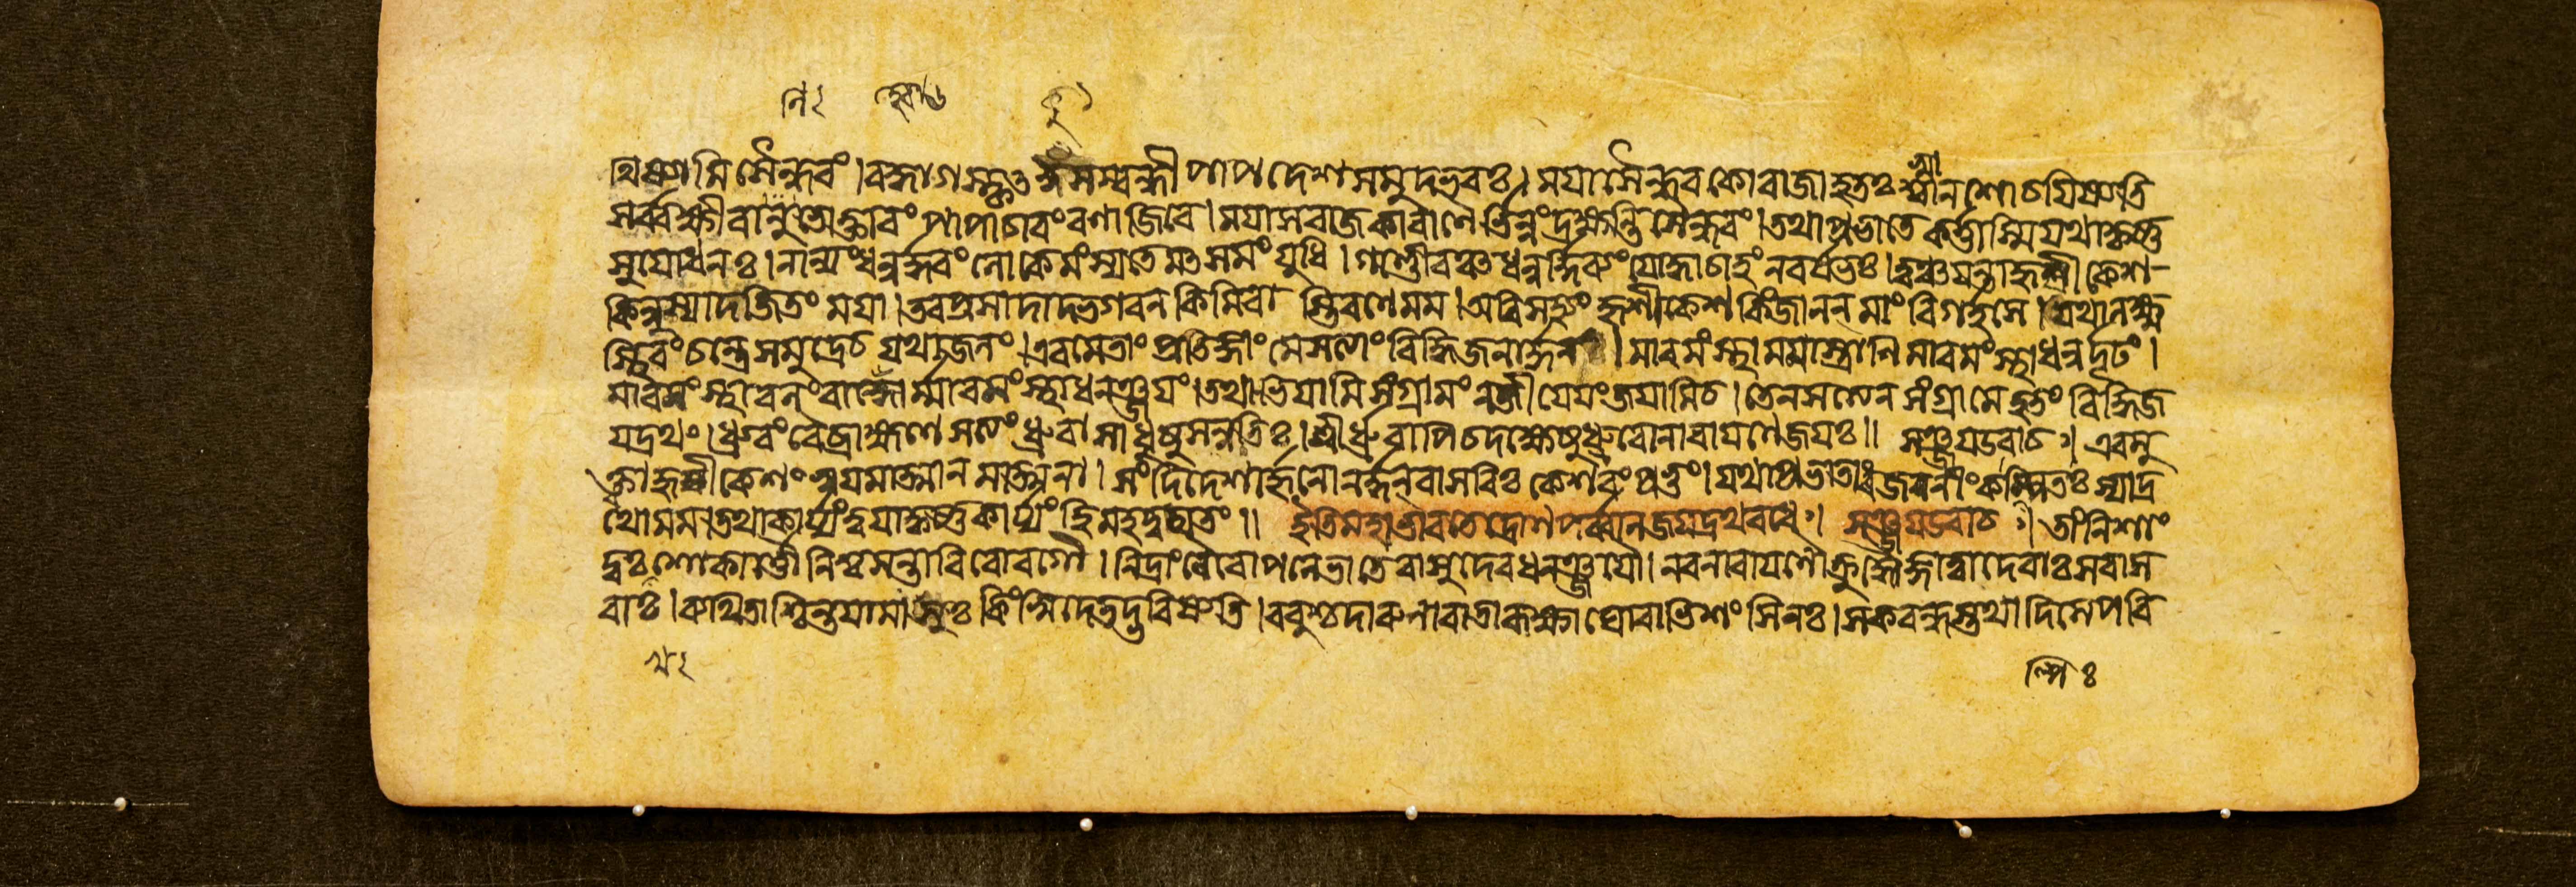 থিষ্যামি সৈন্ধবং । বহ্বাগস্কৃৎ কুসম্বন্ধী পাপদেশসমুদ্ভবঃ । ময়া সৈন্ধবকো রাজা হতঃ স্বান শোচয়িষ্যতি
সর্ব্বক্ষীরান্নভোক্তারং পাপাচারং রণাজিরে । ময়া সরাজকা বাণৈ র্ভিন্নং দ্রক্ষ্যন্তি সৈন্ধবং । তথা প্রভাতে কর্ত্তাস্মি যথা কৃষ্ণ
সুযোধনঃ । নান্যং ধনুর্দ্ধরং লোকে মংস্যতে মৎসমং যুধি । গাণ্ডীবঞ্চ ধনুর্দ্দিব্যং যোদ্ধা চাহং নরর্ষভঃ । ত্বঞ্চ যন্তা হৃষীকেশ
কিন্নু স্যাদজিতং ময়া । তব প্রসাদাদ্ভগবন কিমিবাস্তি রণে মম । অবিসহ্যং হৃশীকেশ কিং জানন্ মাং বিগর্হসে । যথা লক্ষ্ম
স্থিরং চন্দ্রে সমুদ্রে চ যথা জলং । এবমেতাং প্রতিজ্ঞাং মে সত্যাং বিদ্ধি জনার্দ্দন । মাবমংস্থা মমাস্ত্রাণি মাবমংস্থা ধনুর্দৃঢং ।
মাবমংস্থা বলং বাহ্বোর্ম্মাবমংস্থা ধনঞ্জয়ং । তথাভিযামি সংগ্রামং ন জীয়েয়ং জয়ামি চ । তেন সত্যেন সংগ্রামে হতং বিদ্ধি জ
য়দ্রথং । ধ্রুবং বৈ ব্রাহ্মণে সত্যং ধ্রুবা সাধুষু সন্নতিঃ । শ্রীর্ধ্রুবাপি চ দক্ষেষু ধ্রুবো নারায়ণে জয়ঃ ॥ সঞ্জয় উবাচ ঃ। এবমু
ক্ত্বা হৃষীকেশং স্বয়মাত্মানমাত্মনা । সংদিদেশার্জ্জুনো নর্দ্দন্ বাসবিঃ কেশবং প্রভুং । যথা প্রভাতাং রজনীং কল্পিতঃ স্যাদ্র
থো মম । তথা কার্য্যং ত্বয়া কৃষ্ণ কার্য্যং হি মহদুদ্যতং ॥ ইতি মহাভারতে দ্রোণপর্ব্বনি জয়দ্রথবধে ঃ। সঞ্জয় উবাচ ঃ। তাং নিশাং
দুঃখশোকার্ত্তৌ নিশ্বসন্তাবিবোরগৌ । নিদ্রাং নৈবোপলেভাতে বাসুদেবধনঞ্জয়ৌ । নরনারায়ণৌ ক্রুদ্ধৌ জ্ঞাত্বা দেবাঃ সবাস
বাঃ । ব্যথিতাশ্চিন্তয়ামাসুঃ কিংস্বিদেতদ্ভবিষ্যতি । ববুশ্চ দারুণা বাতা রূক্ষা ঘোরাভিশংসিনঃ । সকবন্ধস্তথাদিত্যে পরি